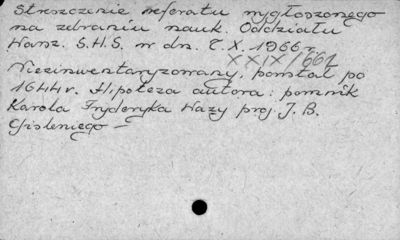 Streszczenie referatu wygłoszonego
na zebraniu nauk. Oddziału
Warsz. S.H.S. w dn. 7.X.1966 r.
XXIX/661
Niezinwentaryzowany, powstał po
1644 r. Hipoteza autora: pomnik
Karola Fryderyka Wazy proj J. B.
Gisleniego —